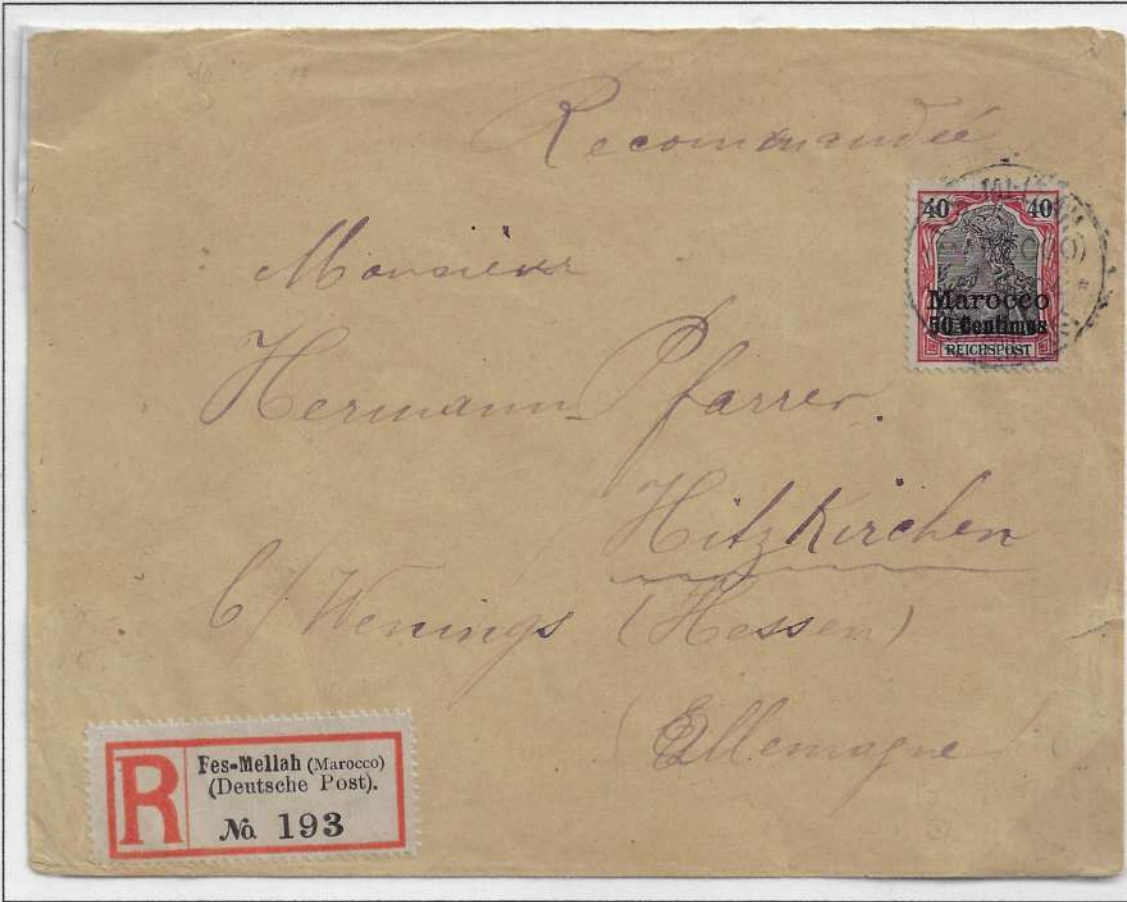 Recommandée
40 40
Marocco
50 Centimos
REICHSPOST
Monsieur
Hermann Pfarrer.
Hitzkirchen
b/ Wenings (Hessen)
(Allemagne)
R
Fes-Mellah (Marocco)
(Deutsche Post).
No. 193